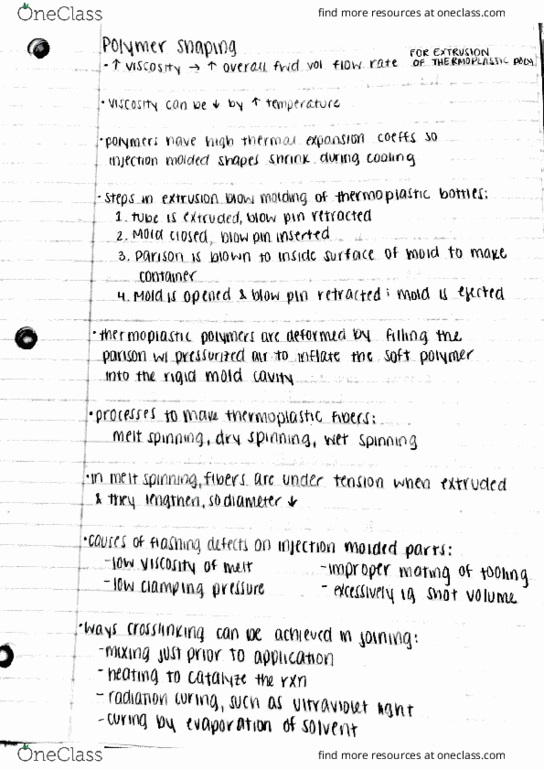 OneClass
find more resources at oneclass.com
Polymer Shaping
• ↑ viscosity → ↑ overall fwd vol flow rate FOR EXTRUSION OF THERMOPLASTIC POLY.
• viscosity can be ↓ by ↑ temperature
• polymers have high thermal expansion coeffs so
injection molded shapes shrink during cooling
• steps in extrusion blow molding of thermoplastic bottles:
1. tube is extruded, blow pin retracted
2. Mold closed, blow pin inserted
3. Parison is blown to inside surface of mold to make
container
4. Mold is opened & blow pin retracted; mold is ejected
• thermoplastic polymers are deformed by filling the
parison w/ pressurized air to inflate the soft polymer
into the rigid mold cavity
• processes to make thermoplastic fibers:
melt spinning, dry spinning, wet spinning
• in melt spinning, fibers are under tension when extruded
& they lengthen, so diameter ↓
• causes of flashing defects on injection molded parts:
- low viscosity of melt - improper mating of tooling
- low clamping pressure - excessively lg shot volume
• ways crosslinking can be achieved in joining:
- mixing just prior to application
- heating to catalyze the rxn
- radiation curing, such as ultraviolet light
- curing by evaporation of solvent
OneClass
find more resources at oneclass.com